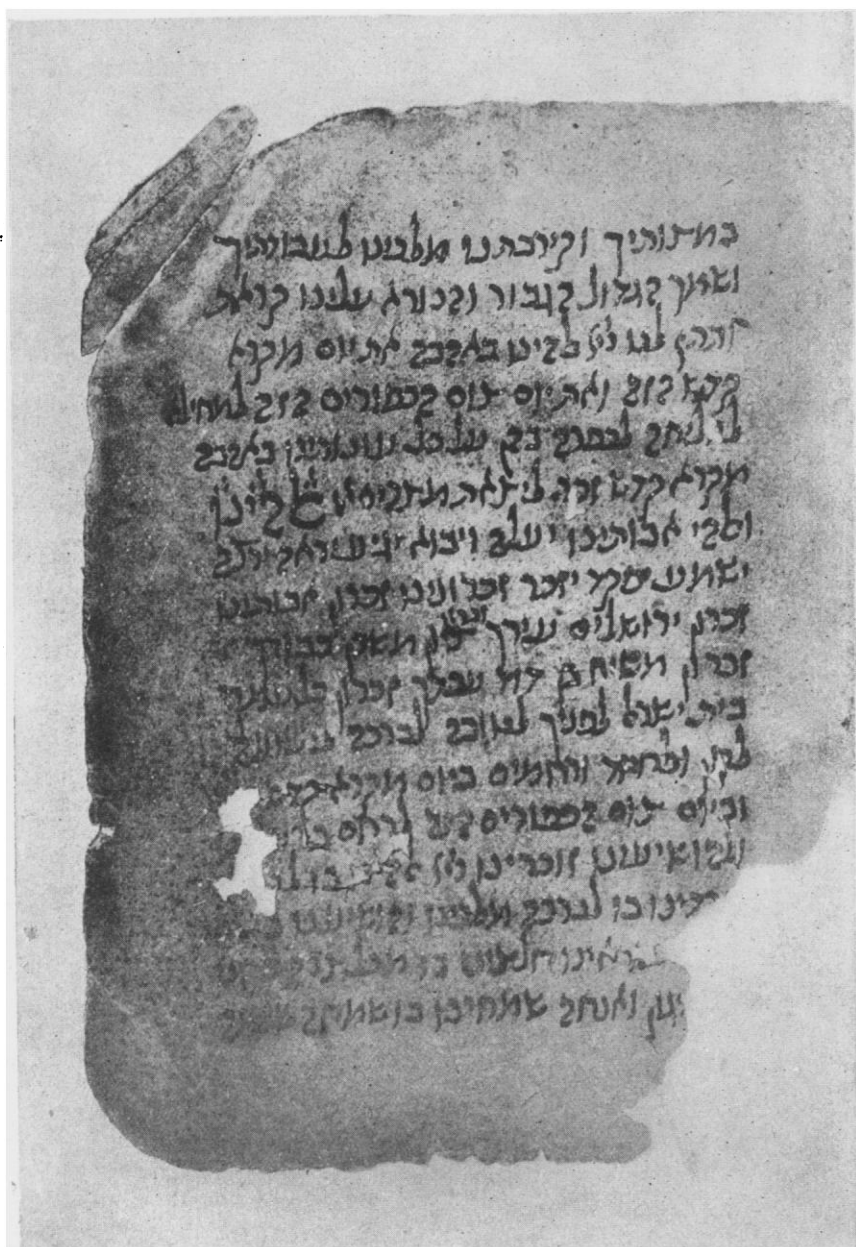 במצותיך וקירבתנו מלכינו לעבודתיך
ושמך הגדול הגבור והנורא עלינו קראת
ותתן לנו ייי אלהינו באהבה את יום מקרא
קדש הזה ואת יום צום הכפורים הזה למחילה
ולכפרה בו על כל עונותינו באהבה
מקרא קדש זכר ליציאת מצרים אלהינו
ואלהי אבותינו יעלה ויבוא יגיע יראה ירצה
ישמע יפקד יזכר זכרונינו זכרון אבותינו
זכרון ירושלים עירך זכרון ציון משכן כבודך
זכרון משיח בן דוד עבדך זכרון כל עמך
בית ישראל לפניך לטובה לברכה
ורחמים ביום מקרא קדש
וביום צום הכפורים הזה לרחם בו
ולהושיענו זוכרינו ייי אלהינו בו
בו לברכה מלכינו והושיענו
ואנחה שמחינו בו שמחה